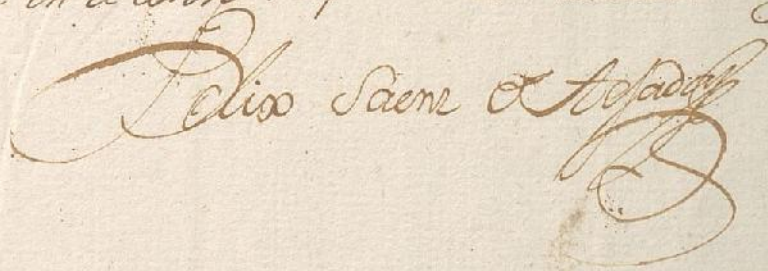 Felix Saenz de Tejada